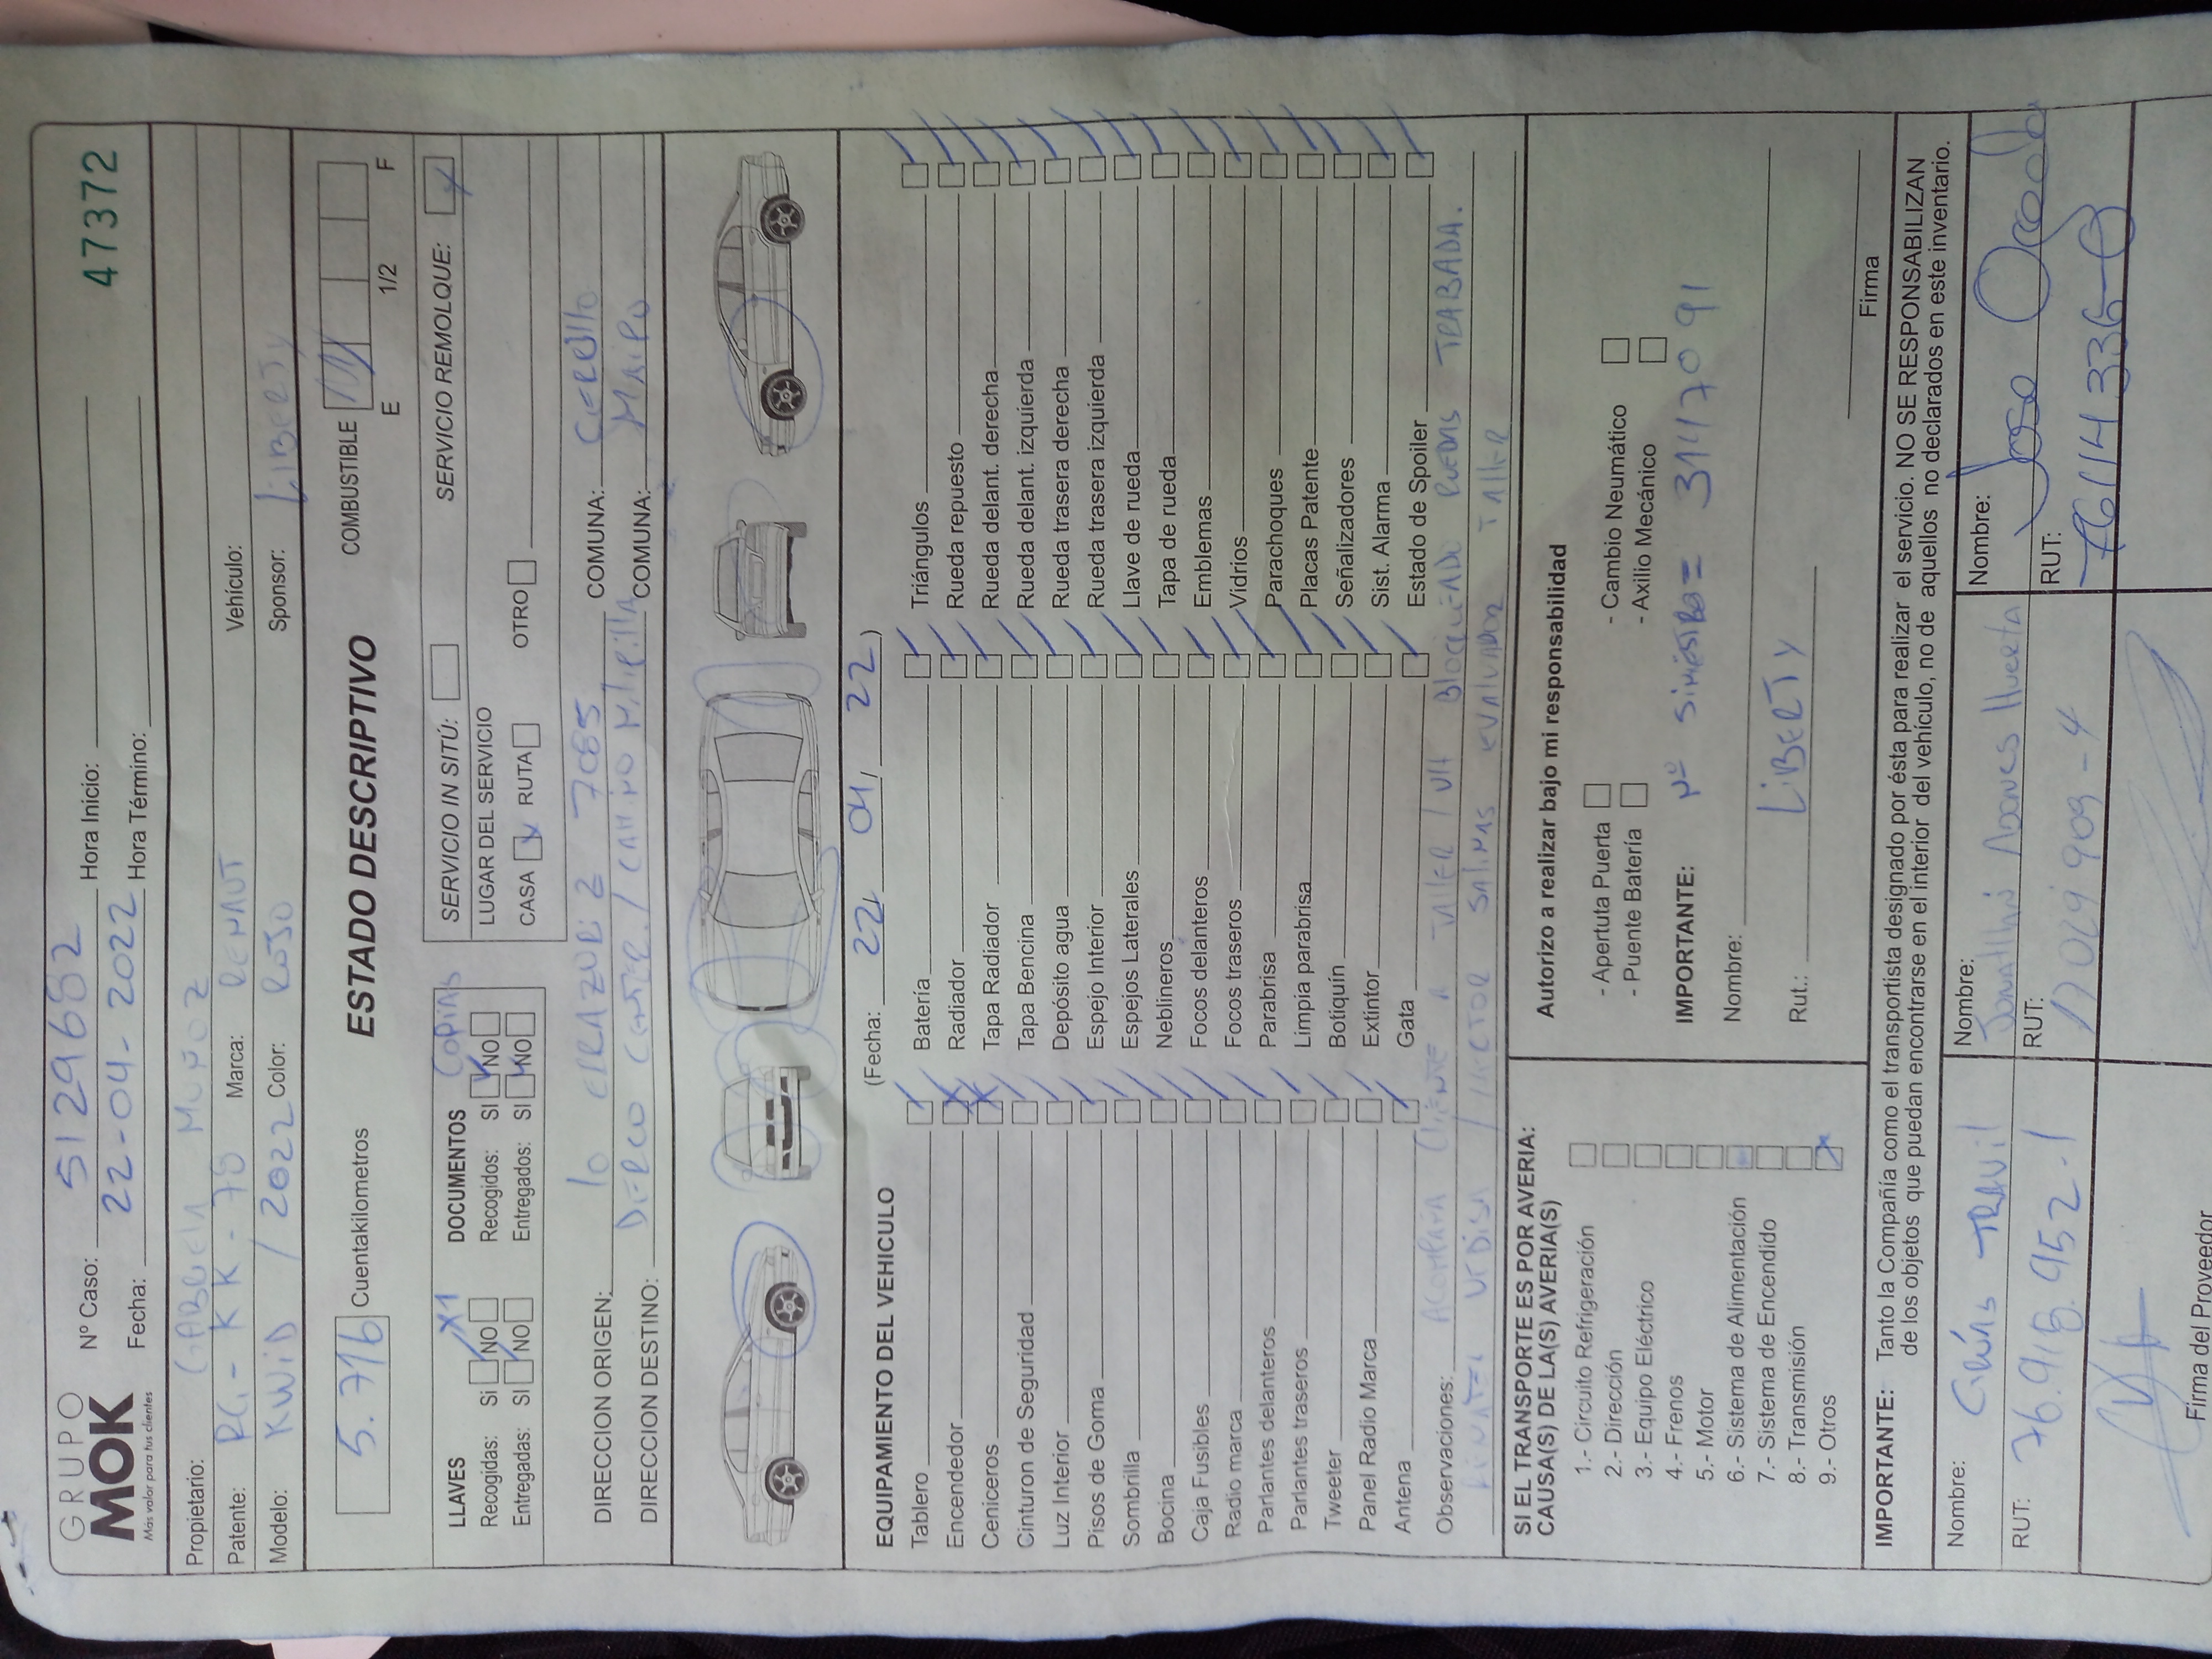 GRUPO
MOK
Más valor para tus clientes
Nº Caso: 5129682 Hora Inicio: 47372
Fecha: 22-04-2022 Hora Término:
Propietario: GABRIELA MUÑOZ
Patente: KK-78 Marca: RENAUT Vehículo:
Modelo: KWID / 2022 Color: ROJO Sponsor: LIBERTY
5.716 Cuentakilometros ESTADO DESCRIPTIVO COMBUSTIBLE
E 1/2 F
LLAVES X1 DOCUMENTOS COPIAS
Recogidas: Si NO Recogidos: SI NO
Entregadas: SI NO Entregados: SI NO
SERVICIO IN SITÚ: SERVICIO REMOLQUE: X
LUGAR DEL SERVICIO
CASA X RUTA OTRO
DIRECCION ORIGEN: lo ERRAZURIZ 7085 COMUNA: CERRILLO
DIRECCION DESTINO: DERCO CENTER / CAMINO MELIPILLA COMUNA: MAIPU
EQUIPAMIENTO DEL VEHICULO (Fecha: 22, 04, 22)
Tablero Batería Triángulos
Encendedor Radiador Rueda repuesto
Ceniceros Tapa Radiador Rueda delant. derecha
Cinturon de Seguridad Tapa Bencina Rueda delant. izquierda
Luz Interior Depósito agua Rueda trasera derecha
Pisos de Goma Espejo Interior Rueda trasera izquierda
Sombrilla Espejos Laterales Llave de rueda
Bocina Neblineros Tapa de rueda
Caja Fusibles Focos delanteros Emblemas
Radio marca Focos traseros Vidrios
Parlantes delanteros Parabrisa Parachoques
Parlantes traseros Limpia parabrisa Placas Patente
Tweeter Botiquín Señalizadores
Panel Radio Marca Extintor Sist. Alarma
Antena Gata Estado de Spoiler
Observaciones: ACOMPAÑA CLIENTE A TALLER / VH BLOQUEADO RUEDAS TRABADA.
/ VICTOR SALINAS EVALUADOR TALLER
SI EL TRANSPORTE ES POR AVERIA:
CAUSA(S) DE LA(S) AVERIA(S)
1.- Circuito Refrigeración
2.- Dirección
3.- Equipo Eléctrico
4.- Frenos
5.- Motor
6.- Sistema de Alimentación
7.- Sistema de Encendido
8.- Transmisión
9.- Otros X
Autorizo a realizar bajo mi responsabilidad
- Apertuta Puerta - Cambio Neumático
- Puente Batería - Axilio Mecánico
IMPORTANTE: Nº SINIESTRO = 3147091
Nombre:
Rut.: LIBERTY
Firma
IMPORTANTE: Tanto la Compañía como el transportista designado por ésta para realizar el servicio. NO SE RESPONSABILIZAN
de los objetos que puedan encontrarse en el interior del vehículo, no de aquellos no declarados en este inventario.
Nombre: GRÚAS TRAVIL
RUT: 76.918.952-1
Firma del Proveedor
Nombre:
RUT: 17029909-4
Nombre: Jose
RUT: